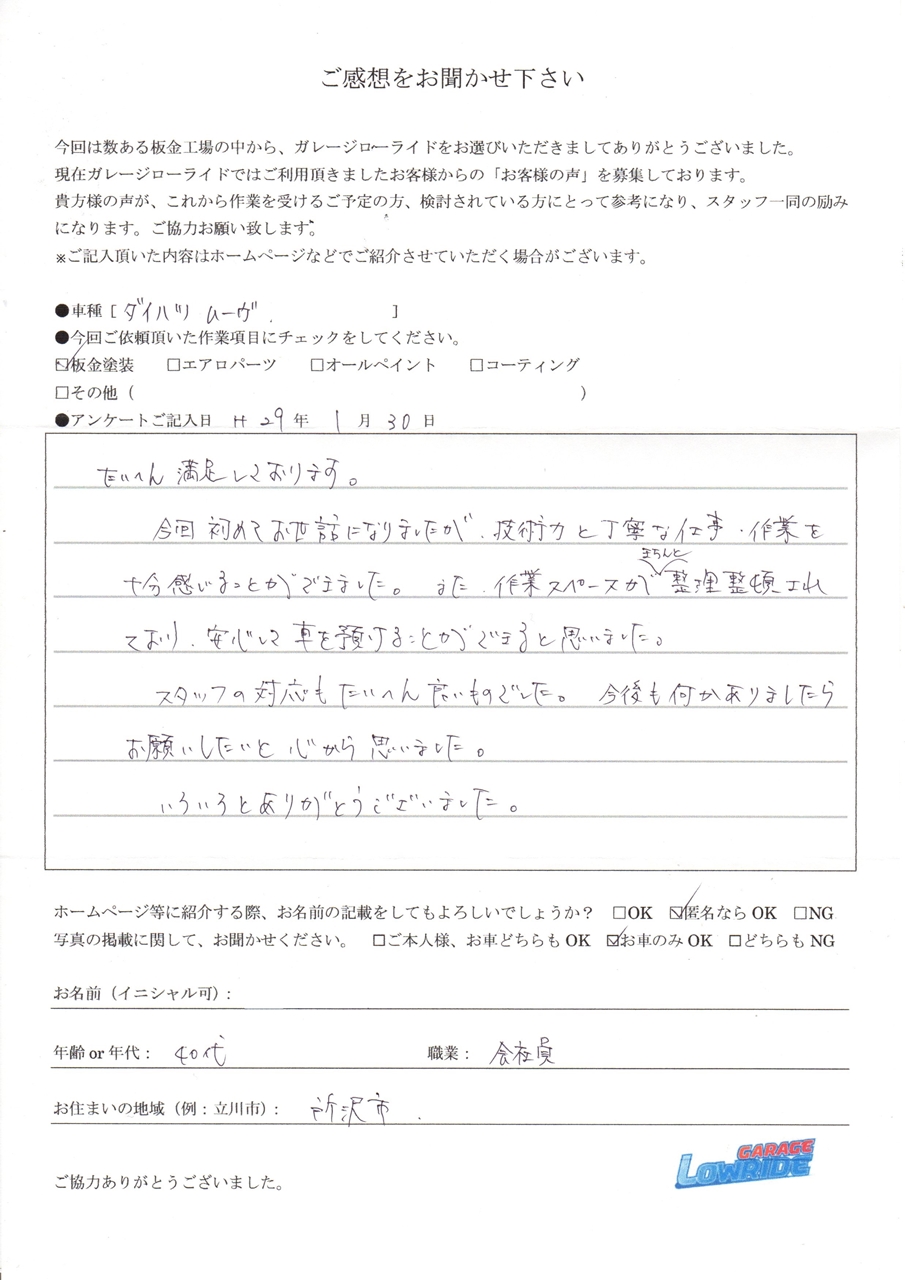 ご感想をお聞かせ下さい
今回は数ある板金工場の中から、ガレージローライドをお選びいただきましてありがとうございました。
現在ガレージローライドではご利用頂きましたお客様からの「お客様の声」を募集しております。
貴方様の声が、これから作業を受けるご予定の方、検討されている方にとって参考になり、スタッフ一同の励み
になります。ご協力お願い致します。
※ご記入頂いた内容はホームページなどでご紹介させていただく場合がございます。
●車種 [ ダイハツ ムーヴ. ]
●今回ご依頼頂いた作業項目にチェックをしてください。
☑板金塗装 □エアロパーツ □オールペイント □コーティング
□その他 ( )
●アンケートご記入日 H 29 年 1 月 30 日
たいへん満足しております。
今回初めてお世話になりましたが、技術力と丁寧な仕事・作業を
きちんと
十分感じることができました。また、作業スペースが整理整頓され
ており、安心して車を預けることができると思いました。
スタッフの対応もたいへん良いものでした。今後も何かありましたら
お願いしたいと心から思いました。
いろいろとありがとうございました。
ホームページ等に紹介する際、お名前の記載をしてもよろしいでしょうか? □OK ☑匿名なら OK □NG
写真の掲載に関して、お聞かせください。 □ご本人様、お車どちらも OK ☑お車のみ OK □どちらも NG
お名前（イニシャル可）:
年齢 or 年代： 40代 職業： 会社員
お住まいの地域（例：立川市）： 所沢市.
GARAGE
LOWRIDE
ご協力ありがとうございました。